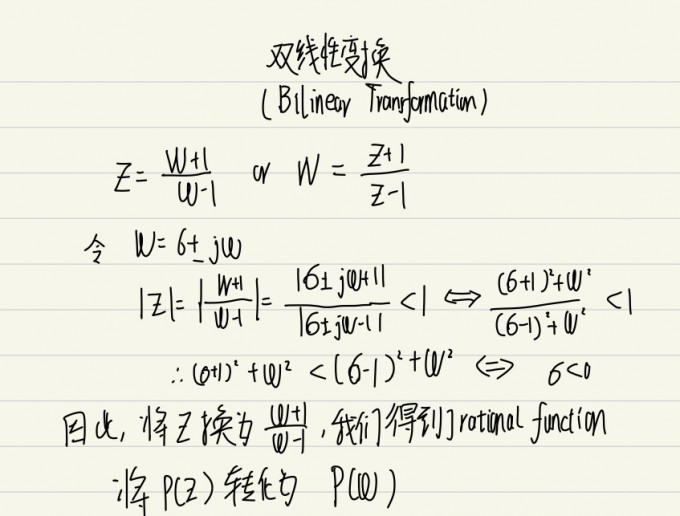 双线性变换
(Bilinear Transformation)
Z = \frac{W+1}{W-1} or W = \frac{Z+1}{Z-1}
令 W = σ ± jω
|Z| = |\frac{W+1}{W-1}| = \frac{|σ ± jω+1|}{|σ ± jω-1|} < 1 ⇔ \frac{(σ+1)²+ω²}{(σ-1)²+ω²} < 1
∴ (σ+1)² + ω² < (σ-1)² + ω² ⇔ σ<0
因此, 将Z换为 \frac{W+1}{W-1}, 我们得到了rational function
将 P(Z) 转化为 P(W)